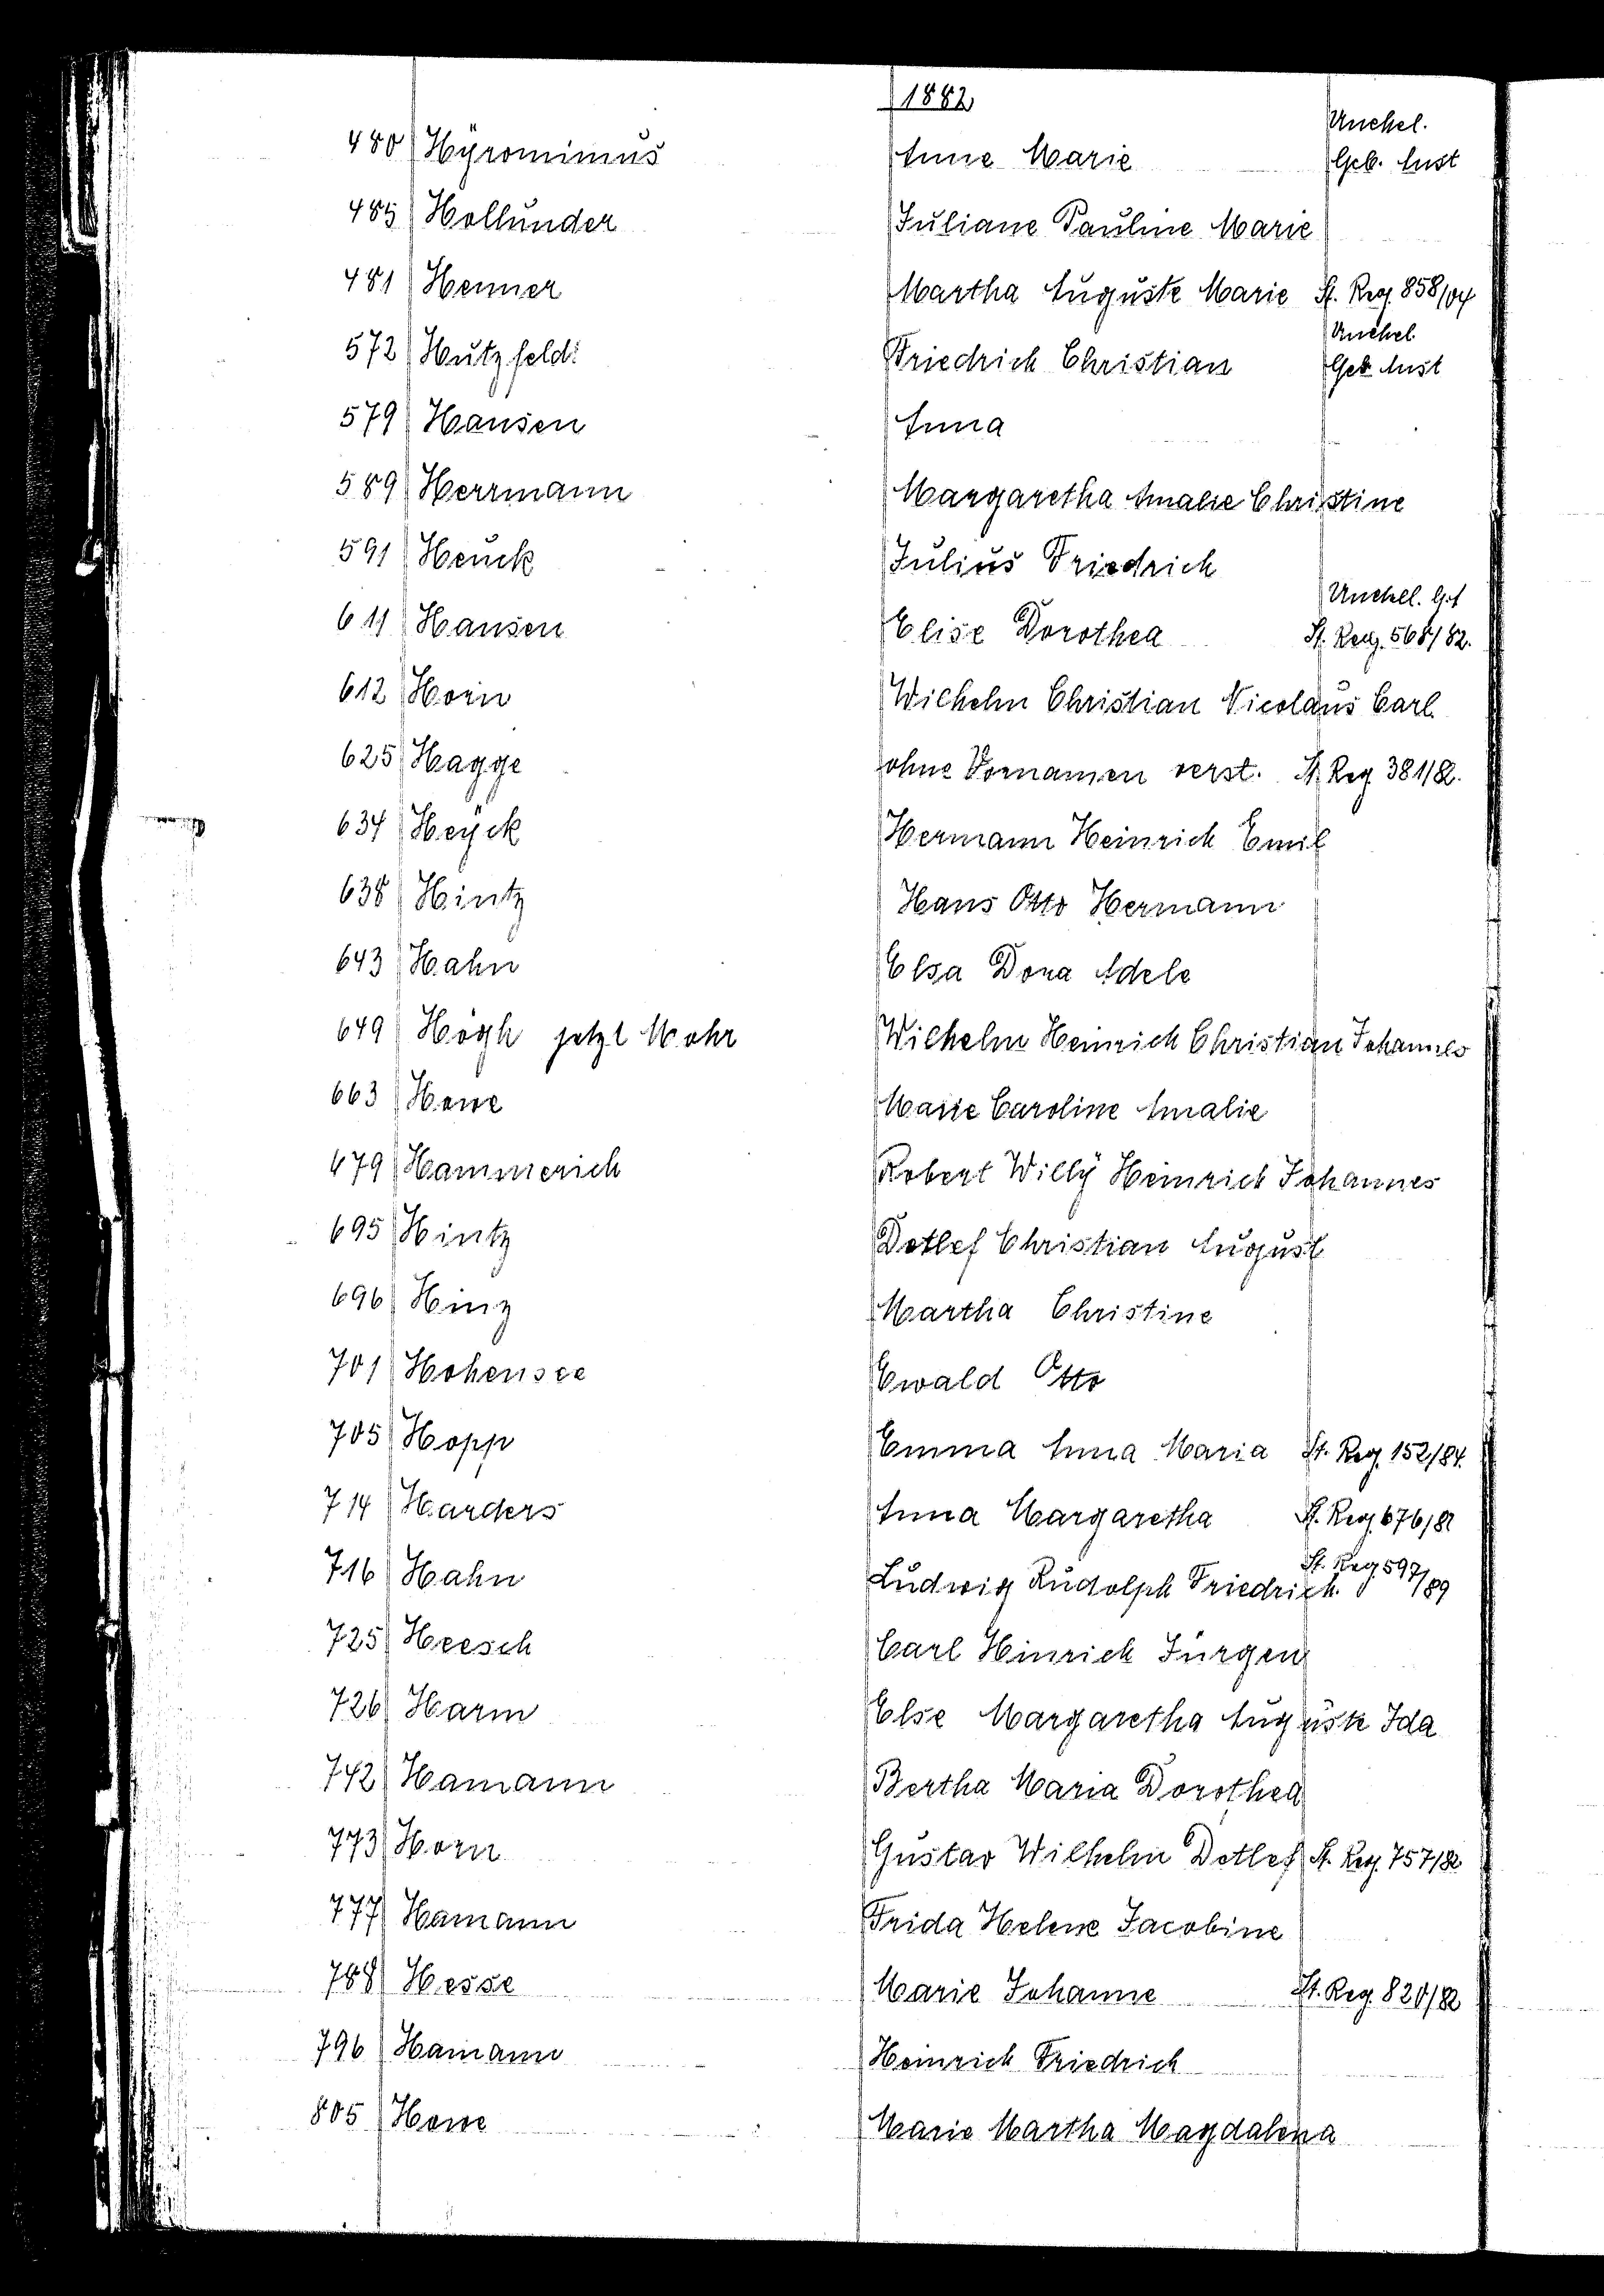 1882
480 Hÿromimus Anne Marie Unehel. Geb. Anst
485 Hollunder Juliane Pauline Marie
481 Henner Martha Auguste Marie St. Reg. 858/04
572 Hutzfeld Friedrich Christian Unehel. Geb Anst
579 Hansen Anna
589 Herrmann Margaretha Amalie Christine
591 Heuck Julius Friedrich
611 Hansen Elise Dorothea Unehel. St. Reg. 568/82.
612 Horn Wilhelm Christian Nicolaus Carl
625 Hagge ohne Vornamen verst. St. Reg 381/82.
634 Heÿck Hermann Heinrich Emil
638 Hintz Hans Otto Hermann
643 Hahn Elsa Dora Adele
649 Högh jetzt Mohr Wilhelm Heinrich Christian Johannes
663 Howe Marie Caroline Amalie
679 Hammerich Robert Willÿ Heinrich Johannes
695 Hintz Detlef Christian August
696 Hinz Martha Christine
701 Hohensee Ewald Otto
705 Hopp Emma Anna Maria St. Reg. 152/84.
714 Harders Anna Margaretha St. Reg. 676/82
716 Hahn Ludwig Rudolph Friedrich. St. Reg 597/89
725 Heesch Carl Hinrich Jürgen
726 Harm Else Margaretha Auguste Ida
742 Hamann Bertha Maria Dorothea
773 Horn Gustav Wilhelm Detlef St. Reg. 757/82
777 Hamann Frida Helene Jacobine
788 Hesse Marie Johanne St. Reg. 820/82
796 Hamann Heinrich Friedrich
805 Howe Marie Martha Magdalena